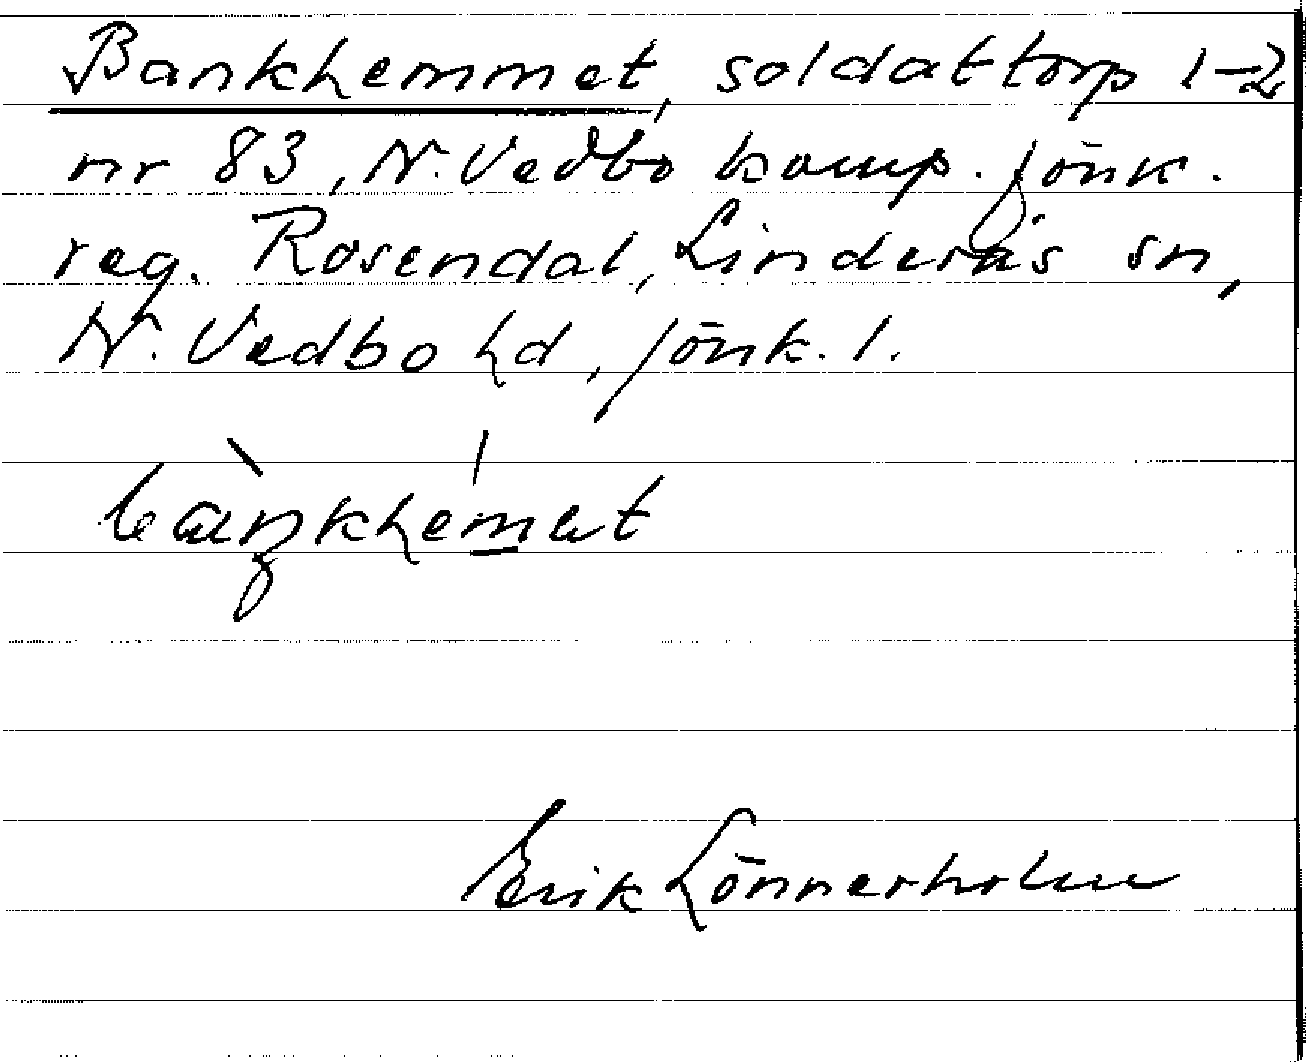 Bankhemmet, soldattorp 1-2
nr 83, N. Vedbo komp. Jönk.
reg. Rosendal, Linderås sn,
N. Vedbo hd, Jönk. l.
bàŋkhémet
Erik Lönnerholm